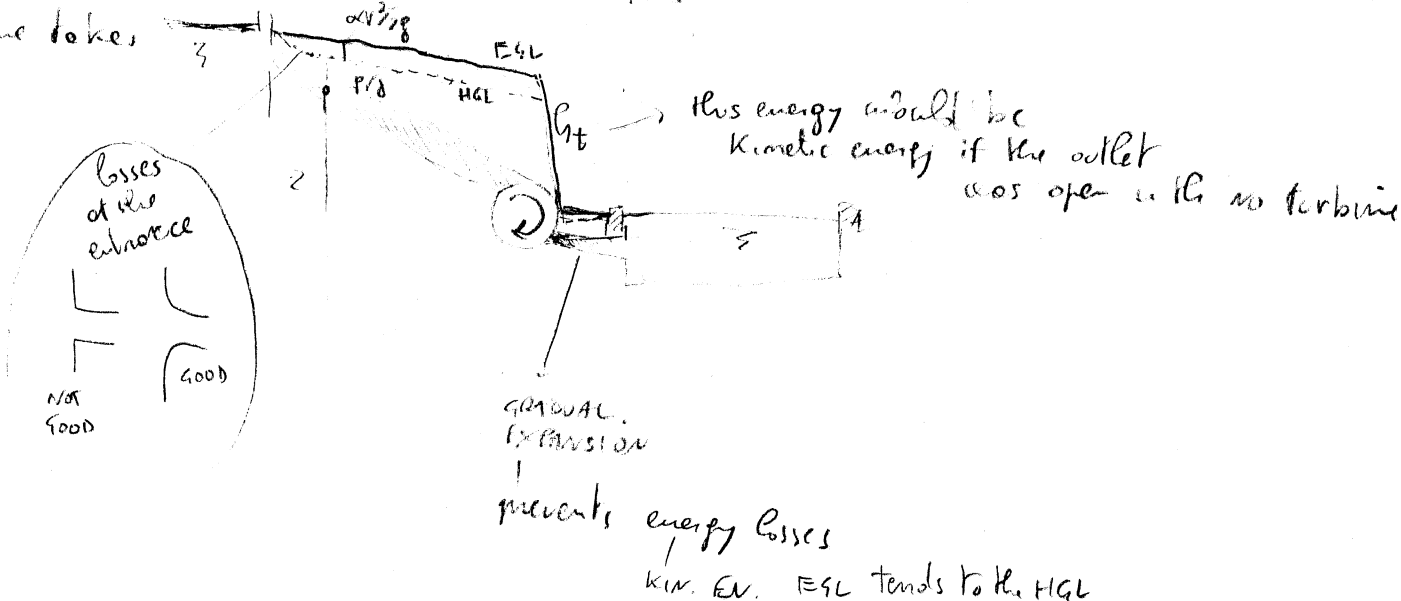 takes
αV²/2g
EGL
P/γ
HGL
this energy would be
kinetic energy if the outlet
was open with no turbine
z
losses
at the
entrance
NOT
GOOD
GOOD
GRADUAL
EXPANSION
prevents energy losses
KIN. EN. EGL tends to the HGL